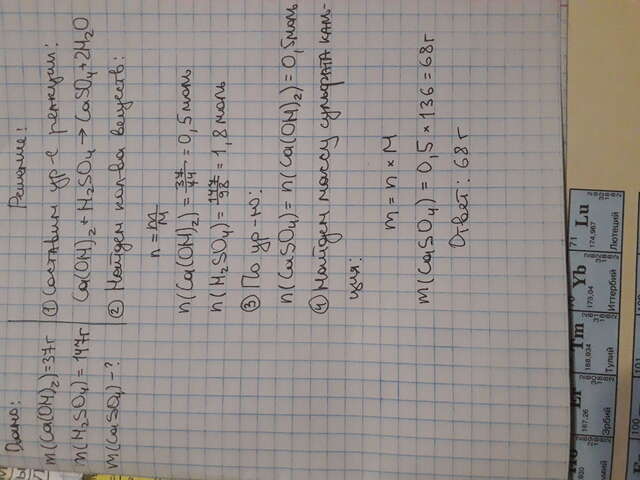 Дано:
m(Ca(OH)2)=37г
m(H2SO4)=147г
m(CaSO4)-?
Решение:
① Составим ур-е реакции:
Ca(OH)2+H2SO4→CaSO4+2H2O
② Найдем кол-ва веществ:
n=m/M
n(Ca(OH)2)=37/74=0,5моль
n(H2SO4)=147/98=1,8моль
③ По ур-ю:
n(CaSO4)=n(Ca(OH)2)=0,5моль
④ Найдем массу сульфата каль-
ция:
m=n×M
m(CaSO4)=0,5×136=68г
Ответ: 68г
Er Tm Yb 71 Lu
167,26 168,934 173,04 174,967
Эрбий Тулий Иттербий Лютеций
100 101